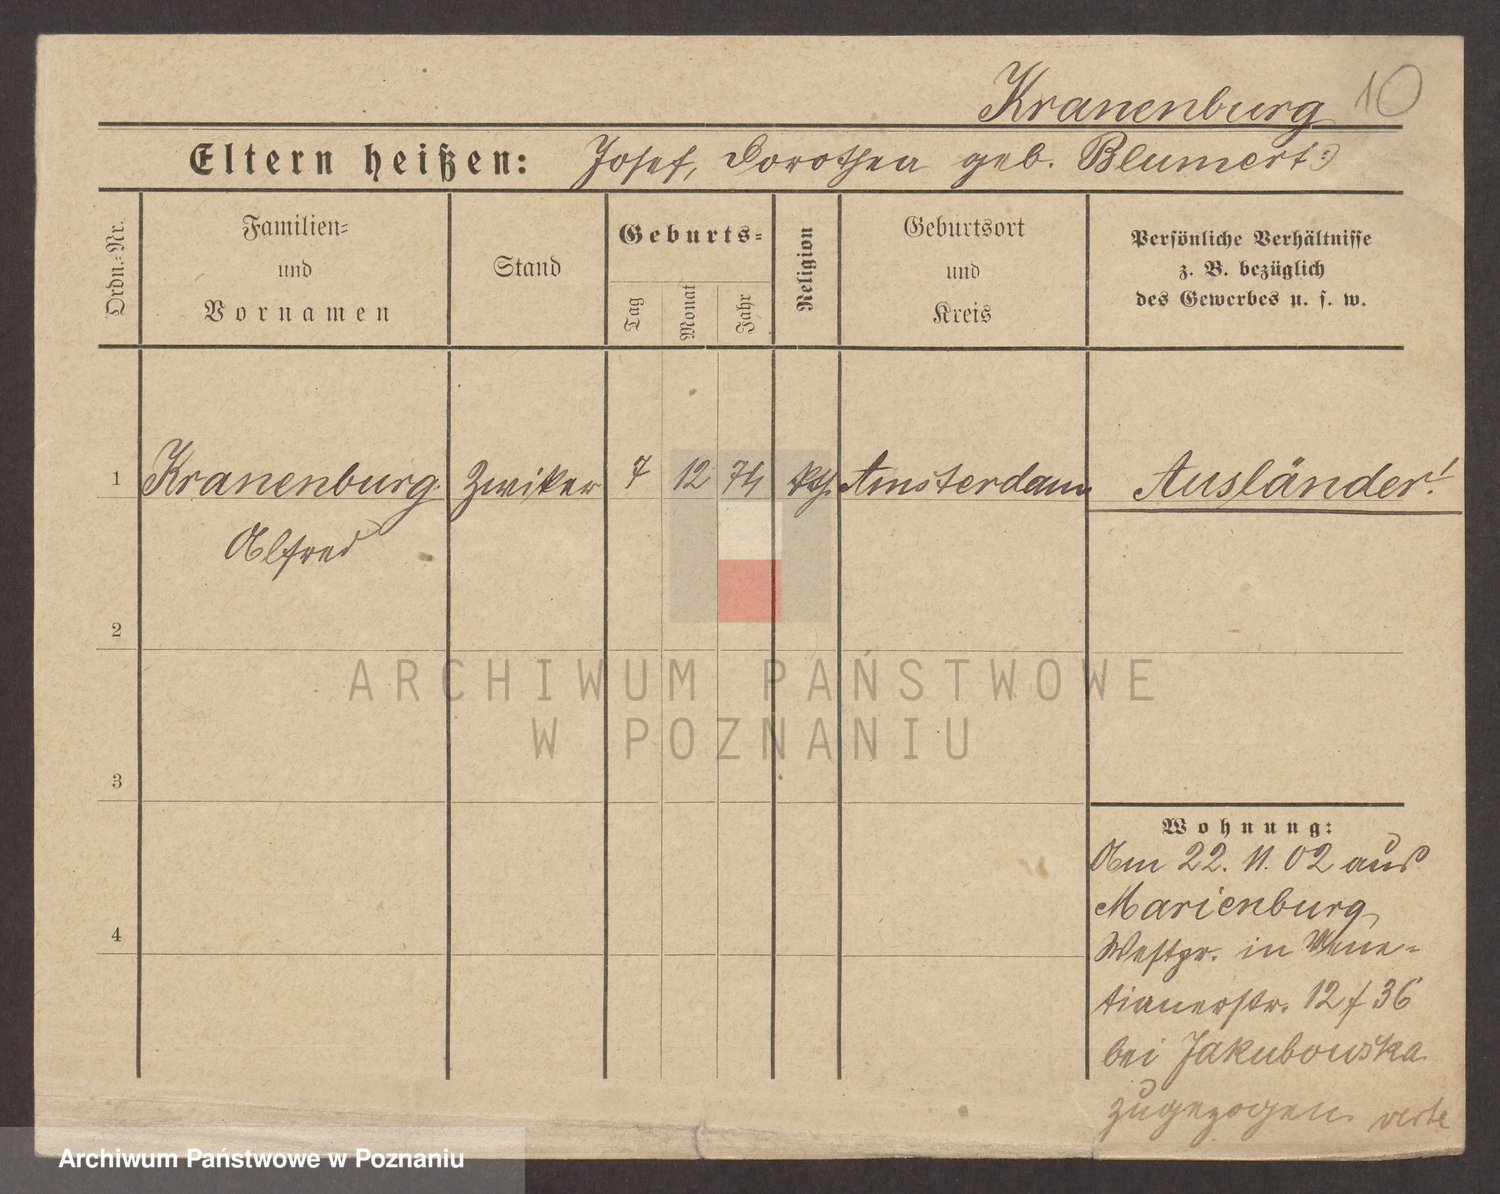 Kranenburg 10
Eltern heißen: Josef, Dorothea geb. Blumert
Ordn.-Nr.
Familien-
und
Vornamen
Stand
Geburts-
Tag
Monat
Jahr
Religion
Geburtsort
und
Kreis
Persönliche Verhältnisse
z. B. bezüglich
des Gewerbes u. s. w.
1 Kranenburg Zwiker 7 12 74 kth. Amsterdam Ausländer!
Alfred
2
3
4
Wohnung:
Am 22. 11. 02 aus
Marienburg
Westpr. in Vene-
tianerstr. 12 f 36
bei Jakubowska
zugezogen. verte
ARCHIWUM PAŃSTWOWE
W POZNANIU
Archiwum Państwowe w Poznaniu